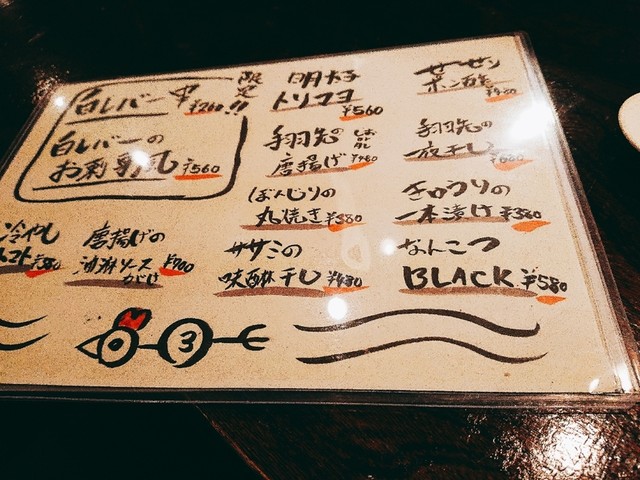 白レバー串 ¥260!!
限定
白レバーの
お刺身風 ¥560
明太子
トリユヨ ¥560
ササミ
ポン酢 ¥480
手羽先の
唐揚げ ¥480
手羽先の
一夜干し ¥600
ぼんじりの
丸焼き ¥380
きゅうりの
一本漬け ¥380
冷やし
トマト ¥380
唐揚げの
油淋ソースがけ ¥700
ササミの
味醂干し ¥480
なんこつ
BLACK ¥580
3